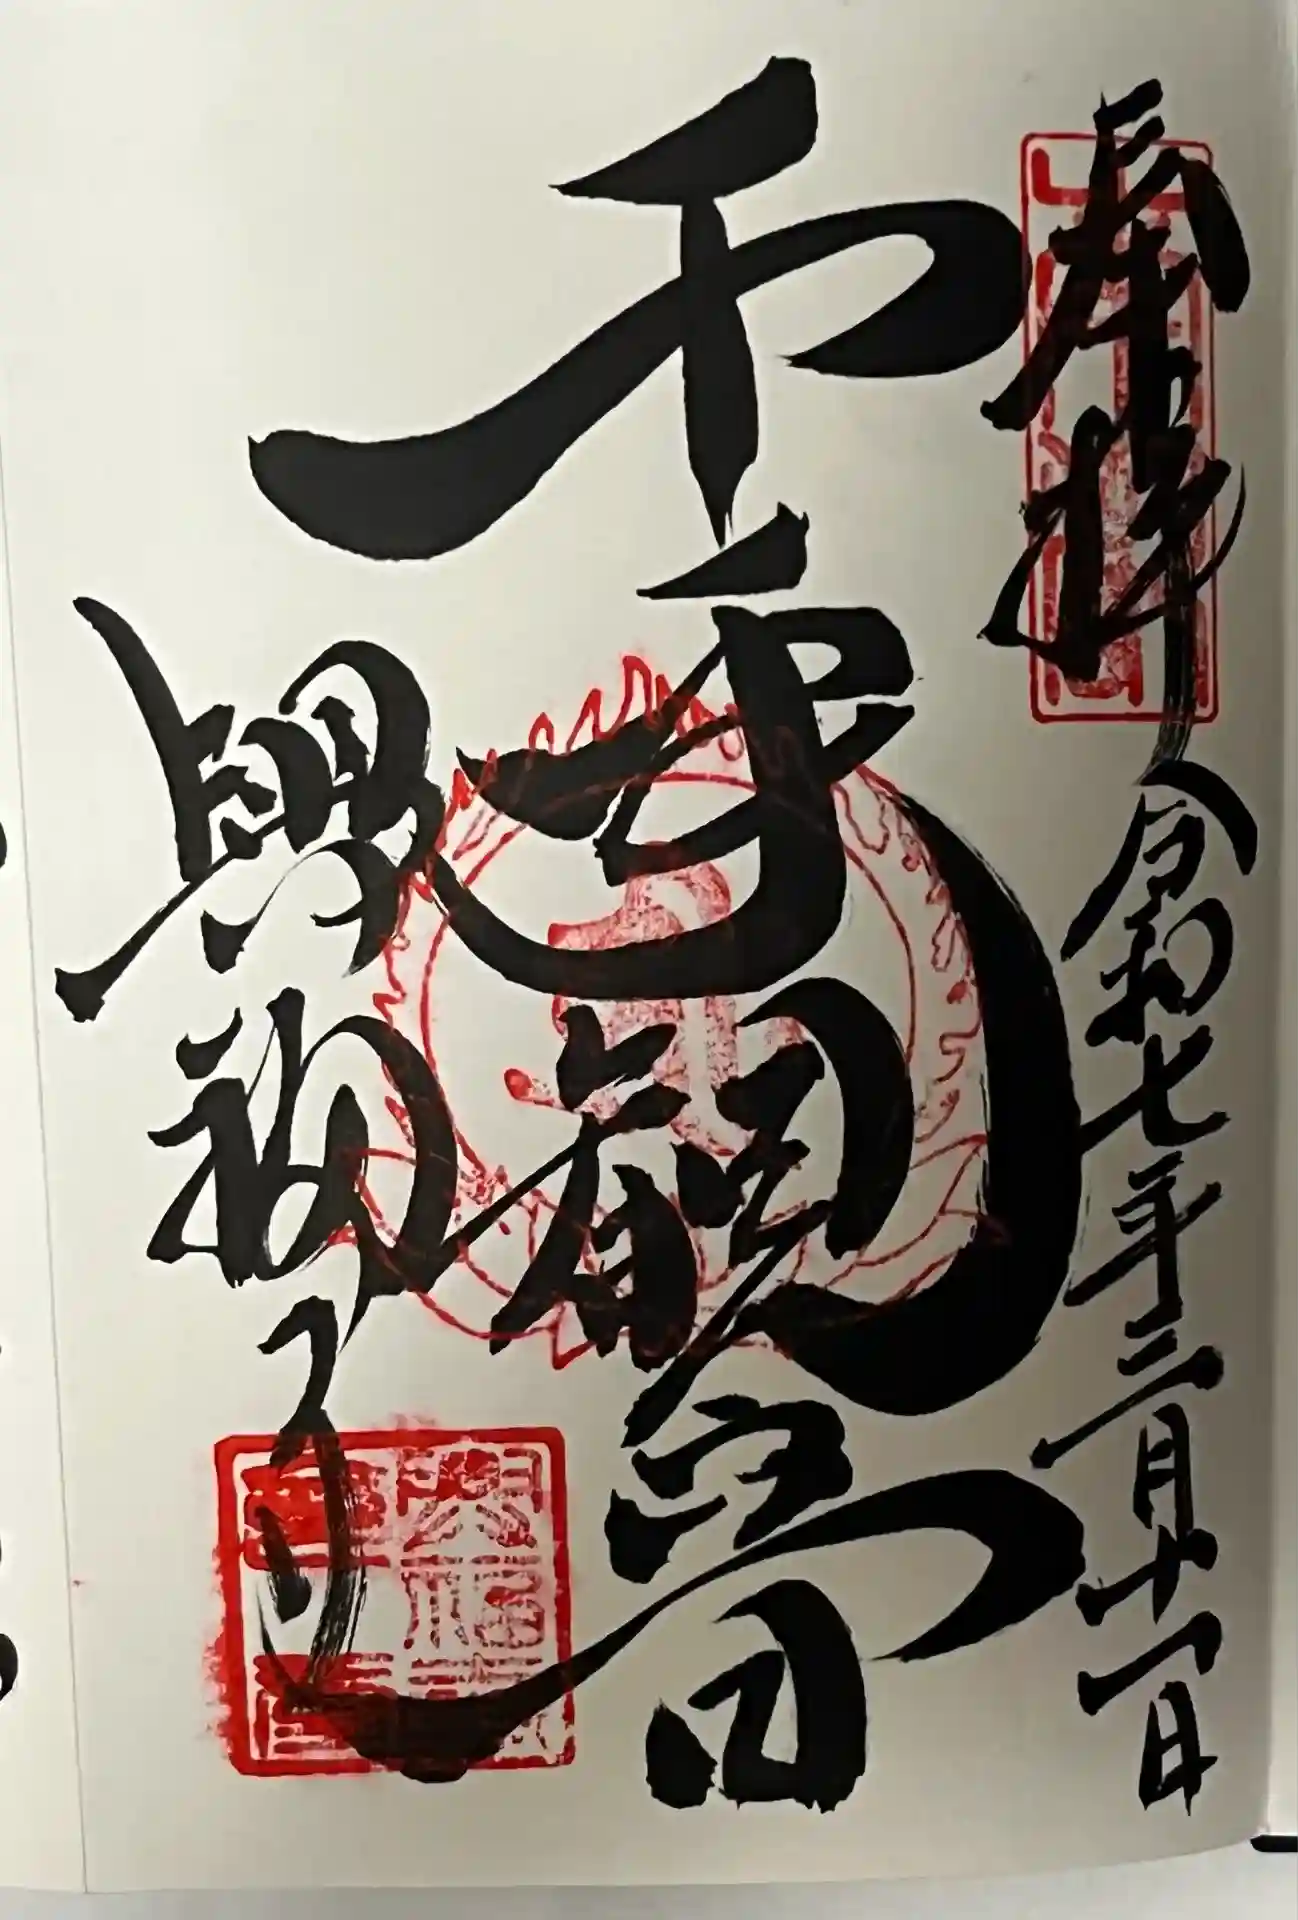 奉拝 令和七年三月十一日
千手観音
興福寺